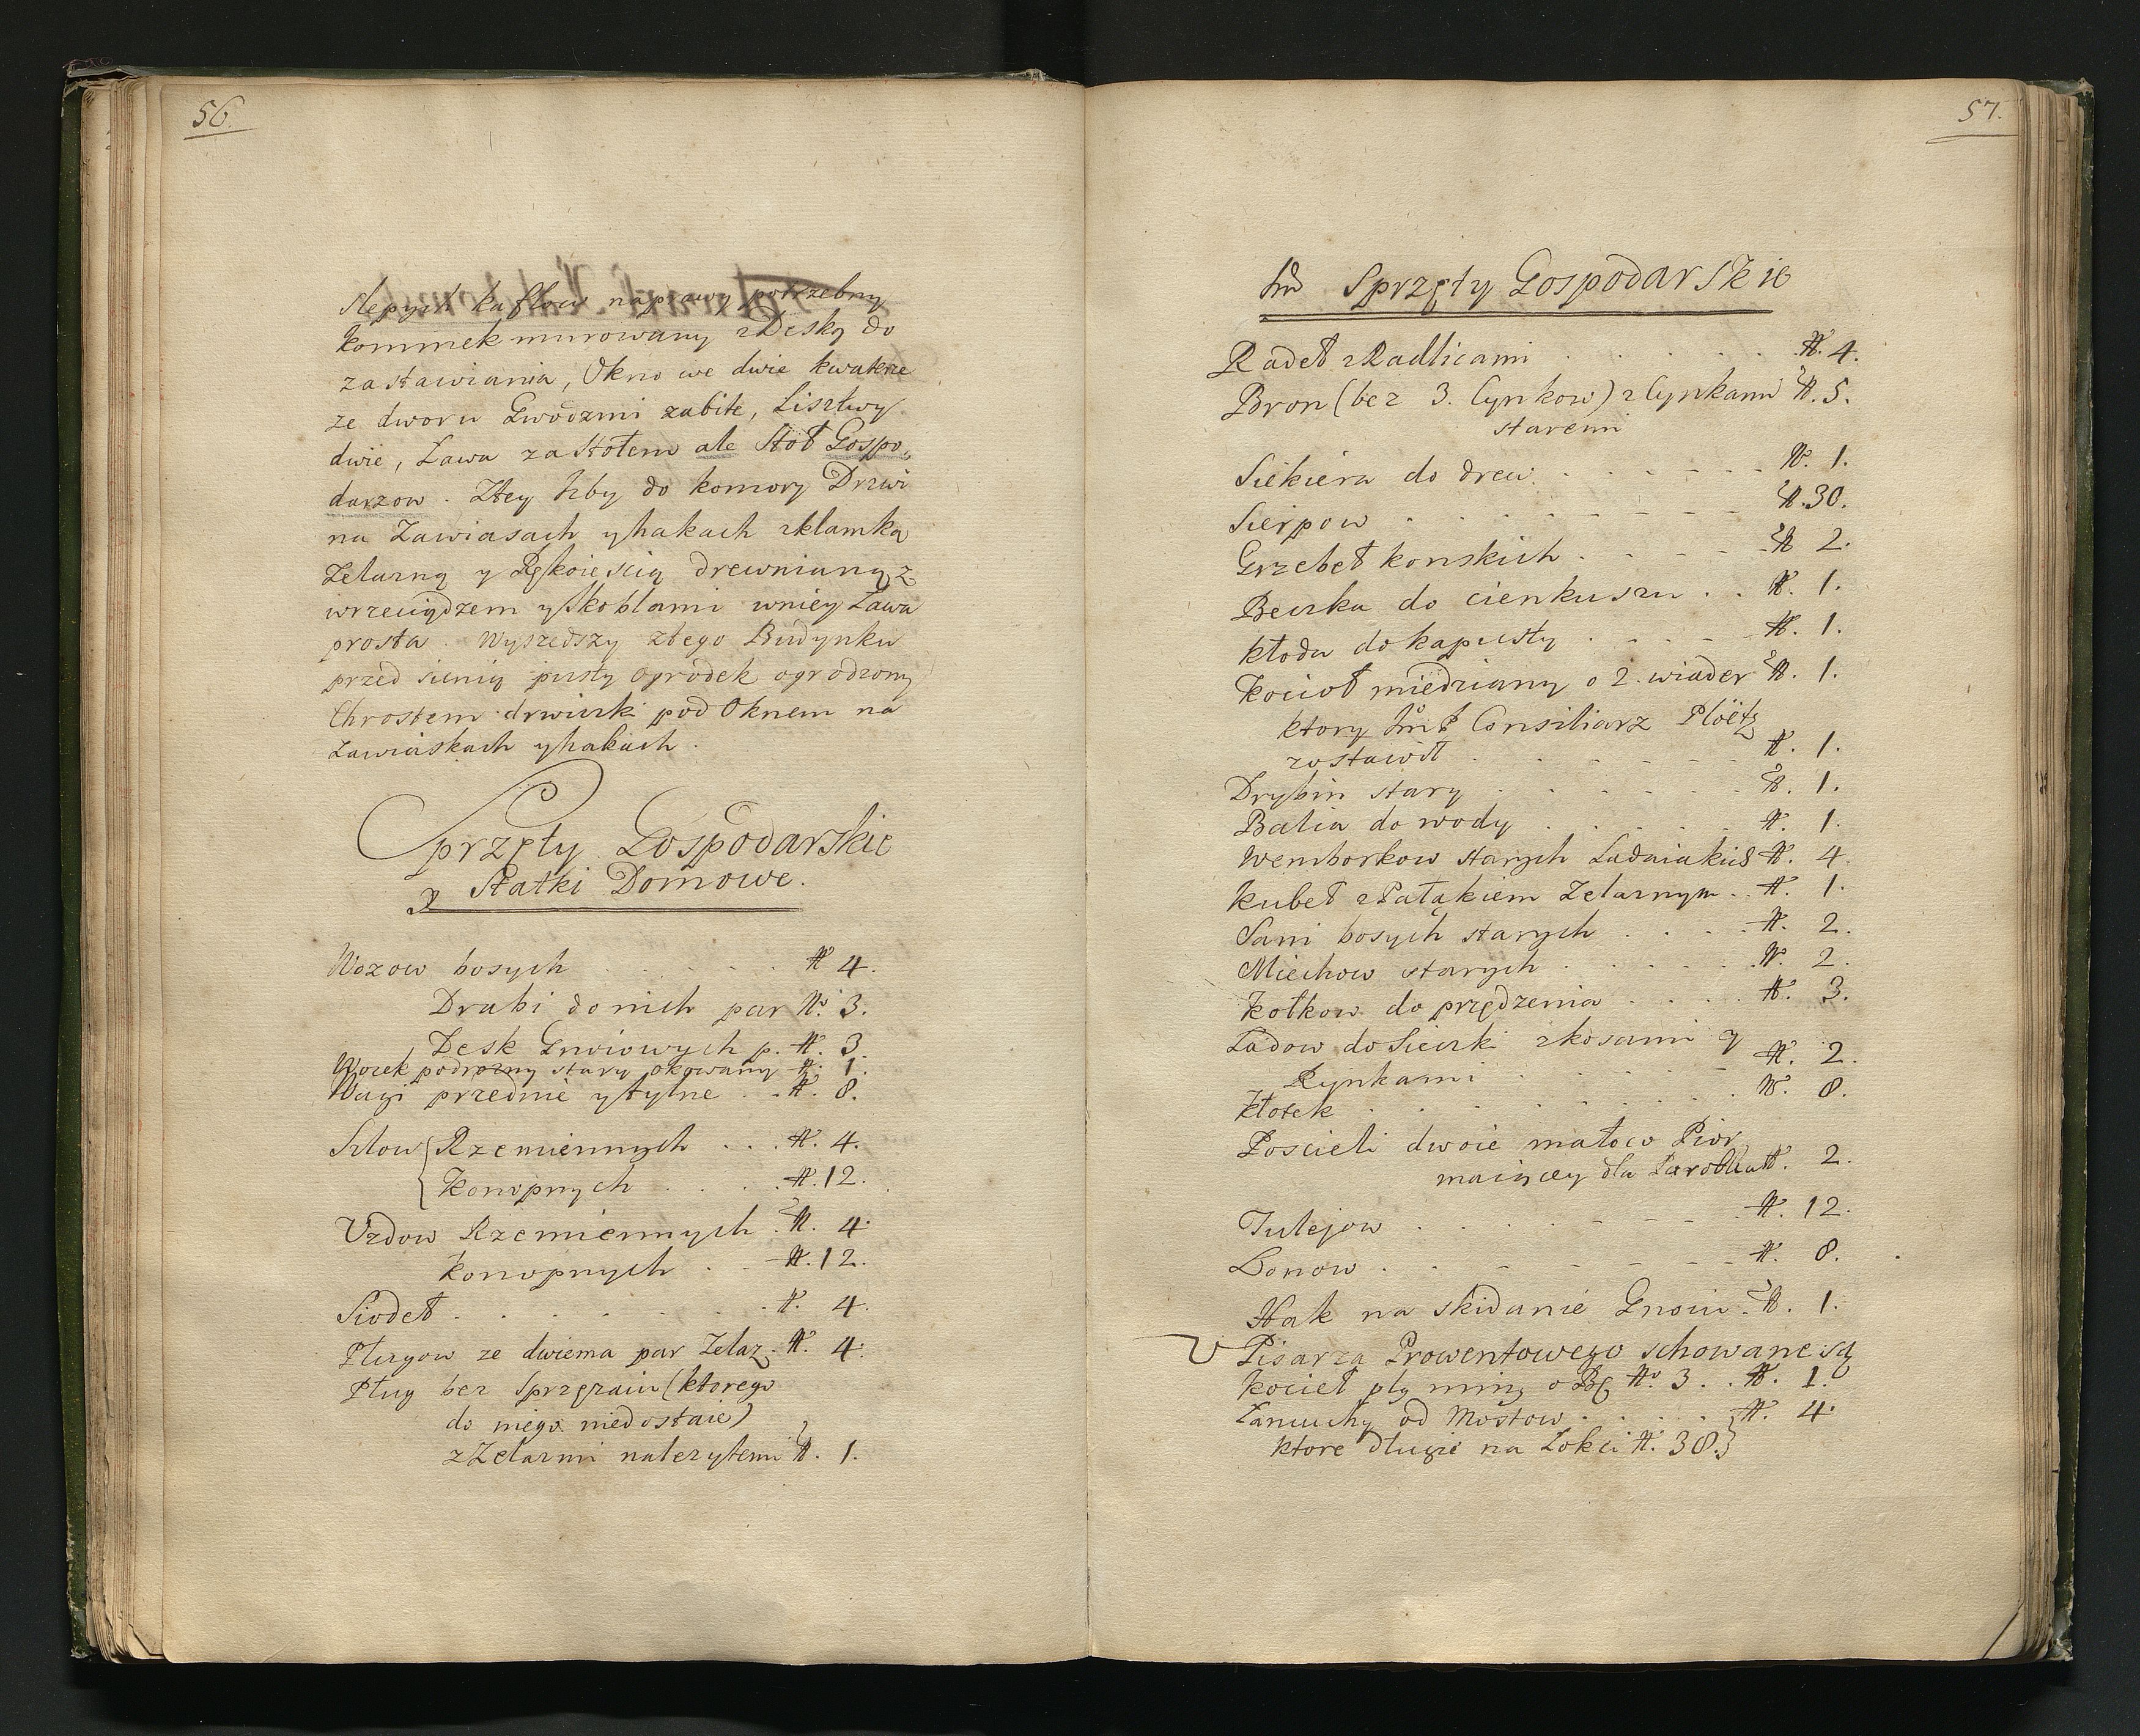 56.
slepych kaflow naprawy potrzebny
kominek murowany z Deską do
zastawiania, Okno we dwie kwaterze
ze dworu Gwodzmi zabite, Lisztwy
dwie, Ława za stołem ale Stoł Gospo,
darzow. Ztey Izby do komory Drzwi
na Zawiasach y hakach zklamką
Zelazną y Rękoieścią drewnianą z
wrzeciądzem y skoblami wniey Ława
prosta. Wyszedszy ztego Budynku
przed sienią pusty ogrodek ogrodzony
Chrostem drwiczki pod Oknem na
zawiaskach y hakach.
Sprzęty Gospodarskie
y Statki Domowe.
Wozow bosych . . . . . . № 4.
Drabi do nich par №. 3.
Desk Gnoiowych p. №. 3.
Wozek podrozny stary okowany №. 1.
Wagi przednie y tylne . . №. 8.
Szlow { Rzemiennych . . . №. 4.
Konopnych . . . . №. 12.
Uzdow Rzemiennych . №. 4.
Konopnych . . №. 12.
Siodeł . . . . . . . . №. 4.
Plugow ze dwiema par Zelaz. №. 4.
Plug bez Sprzęzaiu (ktorego
do niego niedostaie)
z Zelazmi nalezytemi №. 1.
57.
Sprzęty Gospodarskie
Radeł z Radlicami . . . . . . №. 4.
Bron (bez 3. Cynkow) z Cynkami №. 5.
staremi
Siekiera do drew. . . . . . . №. 1.
Sierpow . . . . . . . . . №. 30.
Grzebeł konskich . . . . . № 2.
Beczka do cienkuszu . . №. 1.
kłoda do kapusty . . . . №. 1.
kocioł miedziany o 2. wiader №. 1.
ktory Consiliarz Plöetz
zostawił . . . . . . №. 1.
Drybin stary . . . . . . №. 1.
Balia do wody . . . . . . №. 1.
Wemborkow starych Ladaiakich №. 4.
kubeł z Pałąkiem Zelaznym . . №. 1.
Sani bosych starych . . . . №. 2.
Miechow starych . . . . . №. 2.
kołkow do przędzenia . . . . №. 3.
Ladow do Sieczki z kosami y
Rynkami . . . . . . №. 2.
kłotek . . . . . . . . . №. 8.
Poscieli dwoie mało co Pior
maiącey dla Parobka №. 2.
Tulejow . . . . . . . . №. 12.
Lonow . . . . . . . . №. 8.
Hak na skidanie Gnoiu . №. 1.
U Pisarza Prowentowego schowane są
kocieł o №. 3. . №. 1.
Łancuchy od Mostow . . . . } №. 4.
ktore długie na Łokci №. 38. }